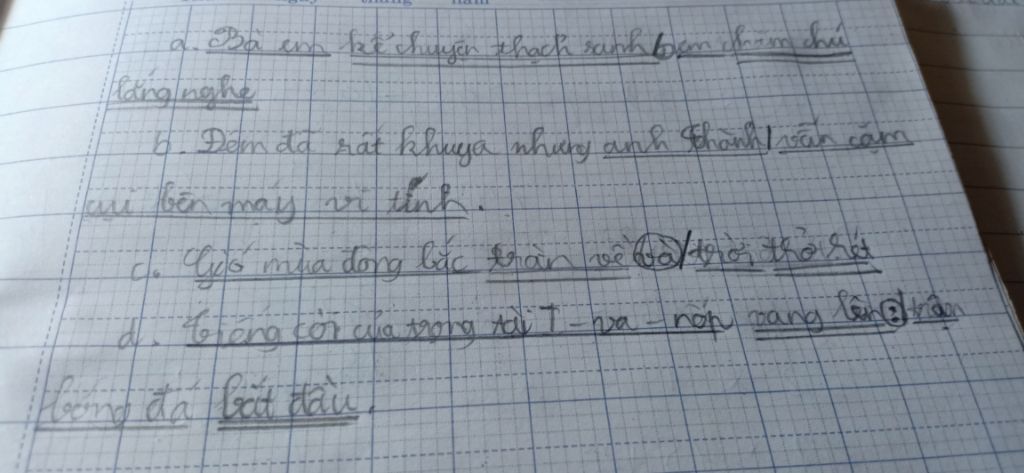 ngày tháng năm
a. Bà em kể chuyện thạch sanh, em chăm chú
lắng nghe
b. Đêm đã rất khuya nhưng anh thành / vẫn cặm
cụi bên máy vi tính.
c. Gió mùa đông bắc tràn về và / trời trở rét
d. tiếng còi của trọng tài I-va-nốp vang lên : trận
bóng đá bắt đầu.